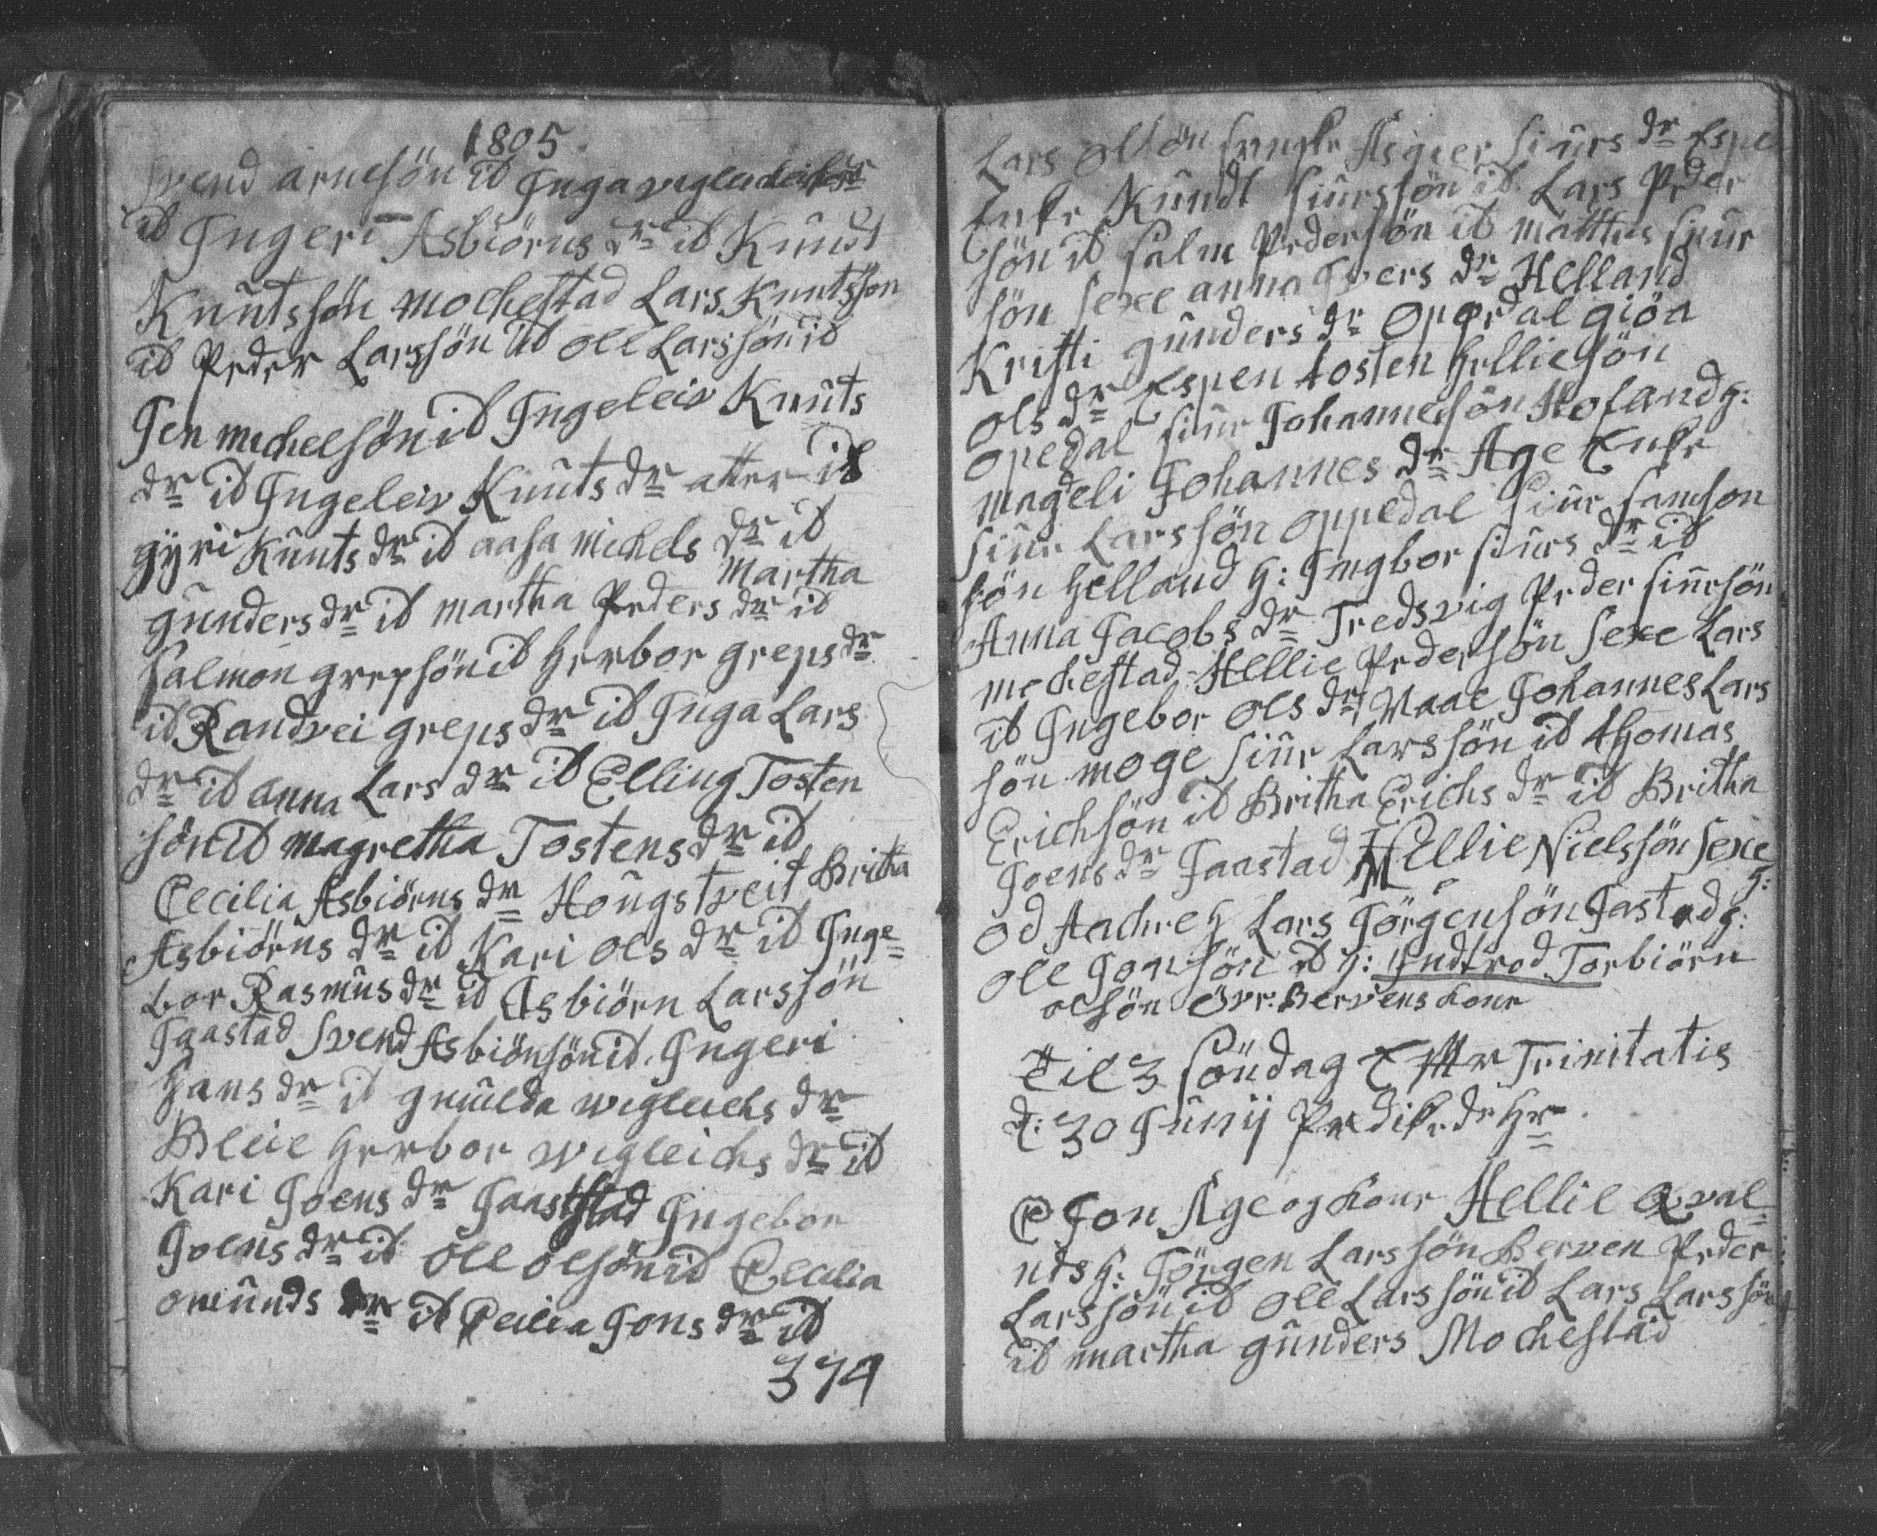 1805
Svend arnesön id Inga
id Ingeri Asbiörns dr id Knudt
Knutssön mochestad Lars Knutssön
id Peder Larssön id Oll Larssön id
Jen michelsön id Ingeleiv Knuts
dr id Ingeleiv Knuts dr atter id
gÿri Knuts dr id aasa michels dr id
Martha
gunders dr id martha Peders dr id
salmon grepsön id Herbor greps dr
id Randvei greps dr id Inga Lars
dr id anna Lars dr id Elling Tosten
sön id magretha Tostens dr id
Cecilia Asbiörns dr Hougstveit Britha
Asbiörns dr id Kari ols dr id Inge=
bor Rasmus dr id Asbiörn Larssön
Jaastad Svend Asbiönsön id Ingeri
Hans dr id guulda wigleichs dr
Bleie Herbor wigleichs dr id
Kari Joens dr Jaastad Ingebor
Joens dr id oll olsön id Cecilia
omunds dr id Cecilia Jons dr id
374
Lars olsön Asgier siurs dr Espe
Enke Kundt siurssön id Lars Peder
sön id salm Pedersön id matthis siur
sön sexe anna Ivers dr Helland
Kristi gunders dr oppedal giöa
ols dr Espen tosten helliesön
opedal siur Johannesön Hofland h:
magdeli Johannes dr Age Enke
siur Larssön oppedal siur samson
sön helland h: Ingbor siurs dr id
Anna Jacobs dr Tredsvig Peder siursön
mochestad Hellie Pedersön sexe Lars
id Ingebor ols dr Maae Johannes Lars
sön moge siur Larssön id thomas
Erichsön id Britha Erichs dr id Britha
Joens dr Jaastad Hellie Nielssön sexe
h:
od Aachre h Lars Jörgensön Jastad h:
oll Jonsön id h: Indtrod Torbiörn
olsön övr: Bervens Kone
Til 3 Söndag Efter Trinitatis
d: 30 Junij Predikede Hr
C Jon Age og Kone Hellie Qval=
nes h: Jörgen Larssön Berven Peder
Larssön id oll Larssön id Lars Larssön
id martha gunders Mochestad